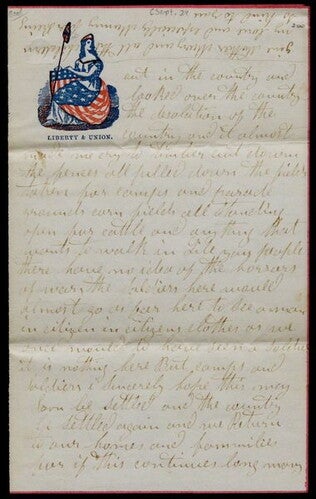 (Sept. 24
LIBERTY & UNION.
out in the country and
looked over the country
the desolation of the
country and it almost
made me cry timber cut down
the fences all pulled down the fields
taken for camps and parade
grounds corn fields all standing
open for cattle and anything that
wants to walk in people
there have no idea of the horrors
of war the soldiers here would
almost go as far here to see a man
in citizen in citizens clothes as we
once would to have seen a soldier
it is nothing here But camps and
soldiers i sincerely hope this may
soon be settled and the country
be settled again and we return
to our homes and families
for if this continues long many